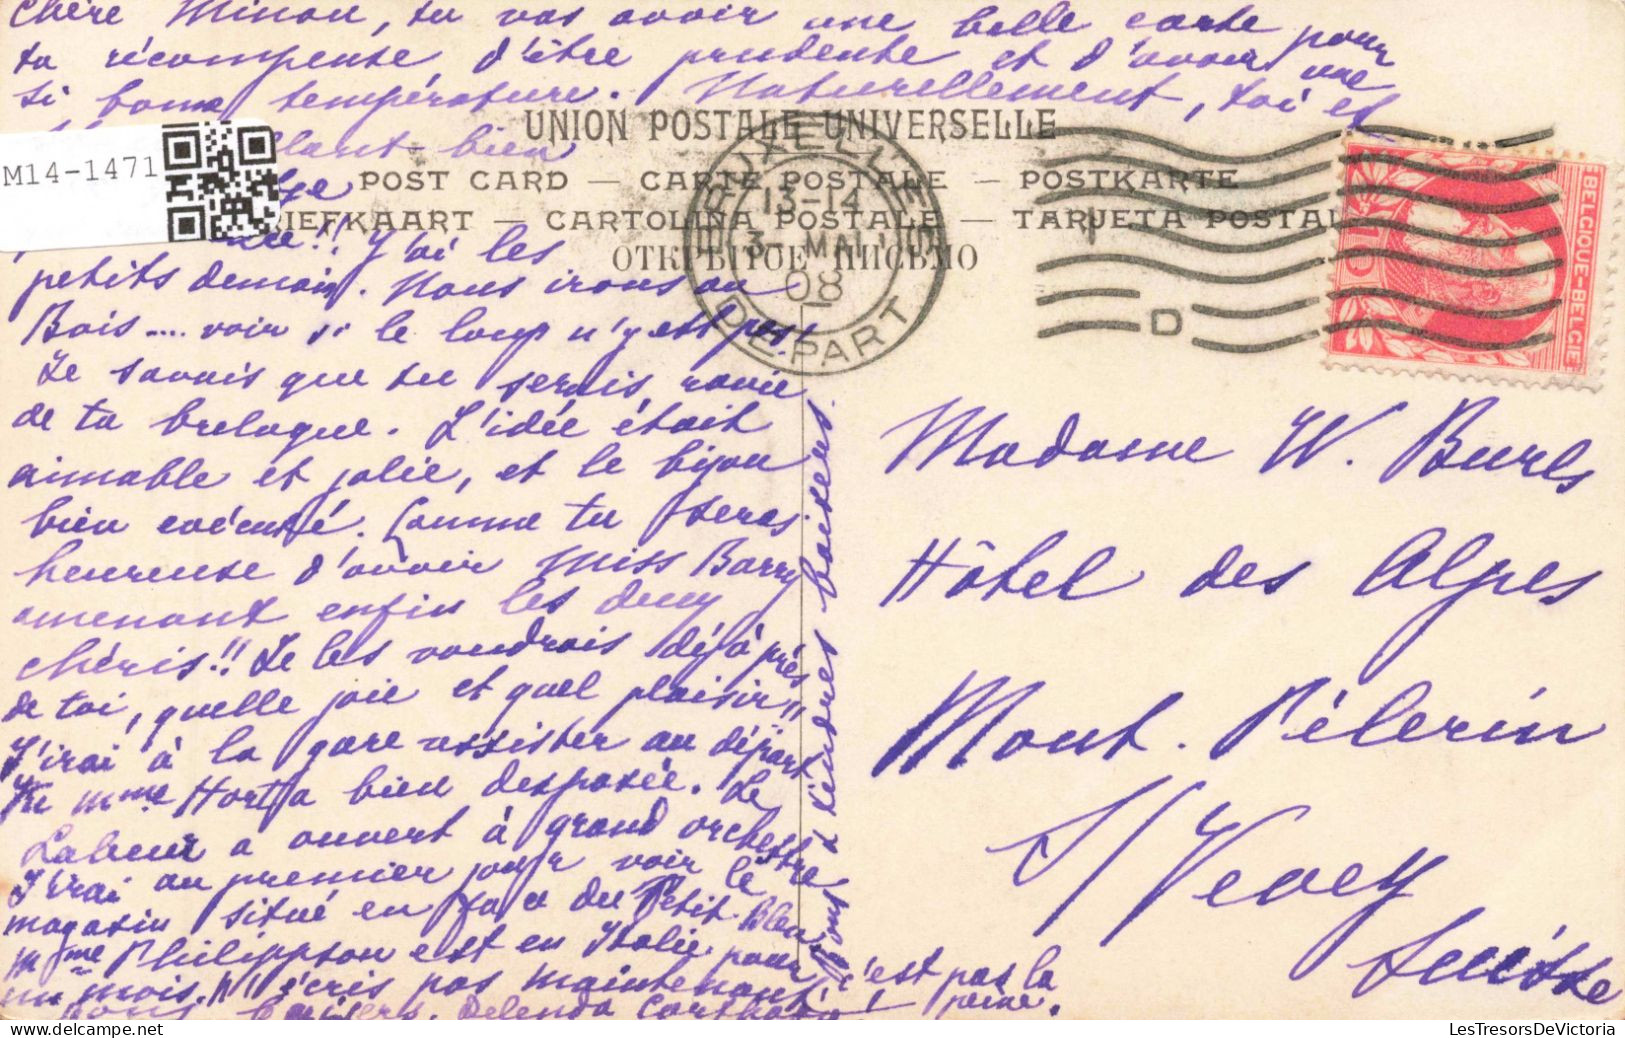 Chère Minou, tu vas avoir une belle carte pour
ta récompense d'être prudente et d'avoir une
si bonne température. Naturellement, toi et
allant bien
M14-1471
UNION POSTALE UNIVERSELLE
POST CARD — CARTE POSTALE — POSTKARTE
BRIEFKAART — CARTOLINA POSTALE — TARJETA POSTAL
ОТКРЫТОЕ ПИСЬМО
BRUXELLES
13-14
3 MAI
08
DEPART
D
BELGIQUE-BELGIE
!! J'ai les
petits demain. Nous irons au
Bois.... voir si le loup n'y est pas.
Je savais que tu serais ravie
de ta breloque. L'idée était
aimable et jolie, et le bijou
bien exécuté. Comme tu seras
heureuse d'avoir Miss Barry
amenant enfin les deux
chéris!! Je les voudrais déjà près
de toi, quelle joie et quel plaisir!!
J'irai à la gare assister au départ
Mme Horta bien disposée. Le
Labeur a ouvert à grand orchestre
J'irai au premier jour voir le
magasin situé en face du Petit Bleu
Mme Philippson est en Italie pour
un mois. N'écris pas maintenant, ce n'est pas la
peine.
Bons baisers. Delenda Carthago!
tendres baisers.
Madame W. Burls
Hôtel des Alpes
Mont. Pélerin
s/Vevey
Suisse
LesTresorsDeVictoria.com